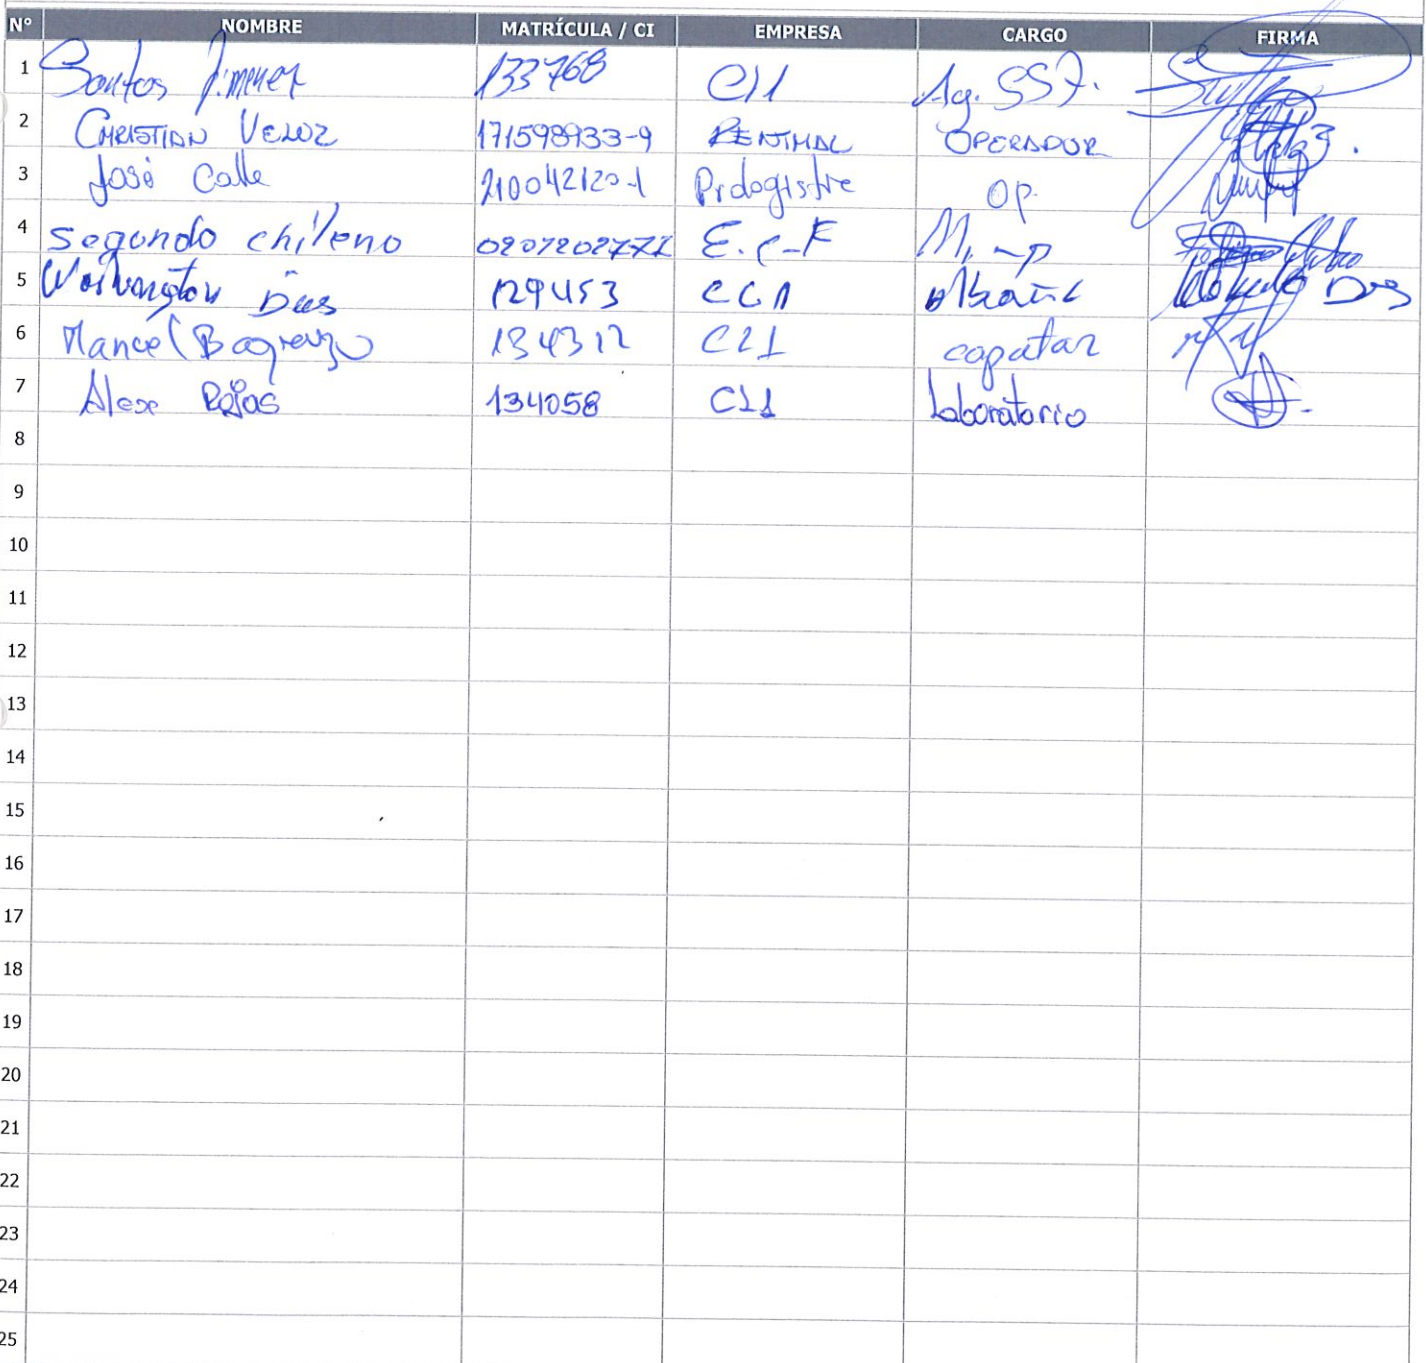 N° NOMBRE MATRÍCULA / CI EMPRESA CARGO FIRMA
1 Santos Jimenez 133768 C11 Ag. SST.
2 CHRISTIAN VELOZ 171598933-9 RENTMAC OPERADOR
3 José Calle 210042120-1 Prologistre Op.
4 segundo chileno E.C-F
5 Washington Dias 129453 CC1 Albañil Dias
6 Manuel 134312 C21 capataz
7 Alex Rojas 134058 C11 Laboratorio
8
9
10
11
12
13
14
15
16
17
18
19
20
21
22
23
24
25